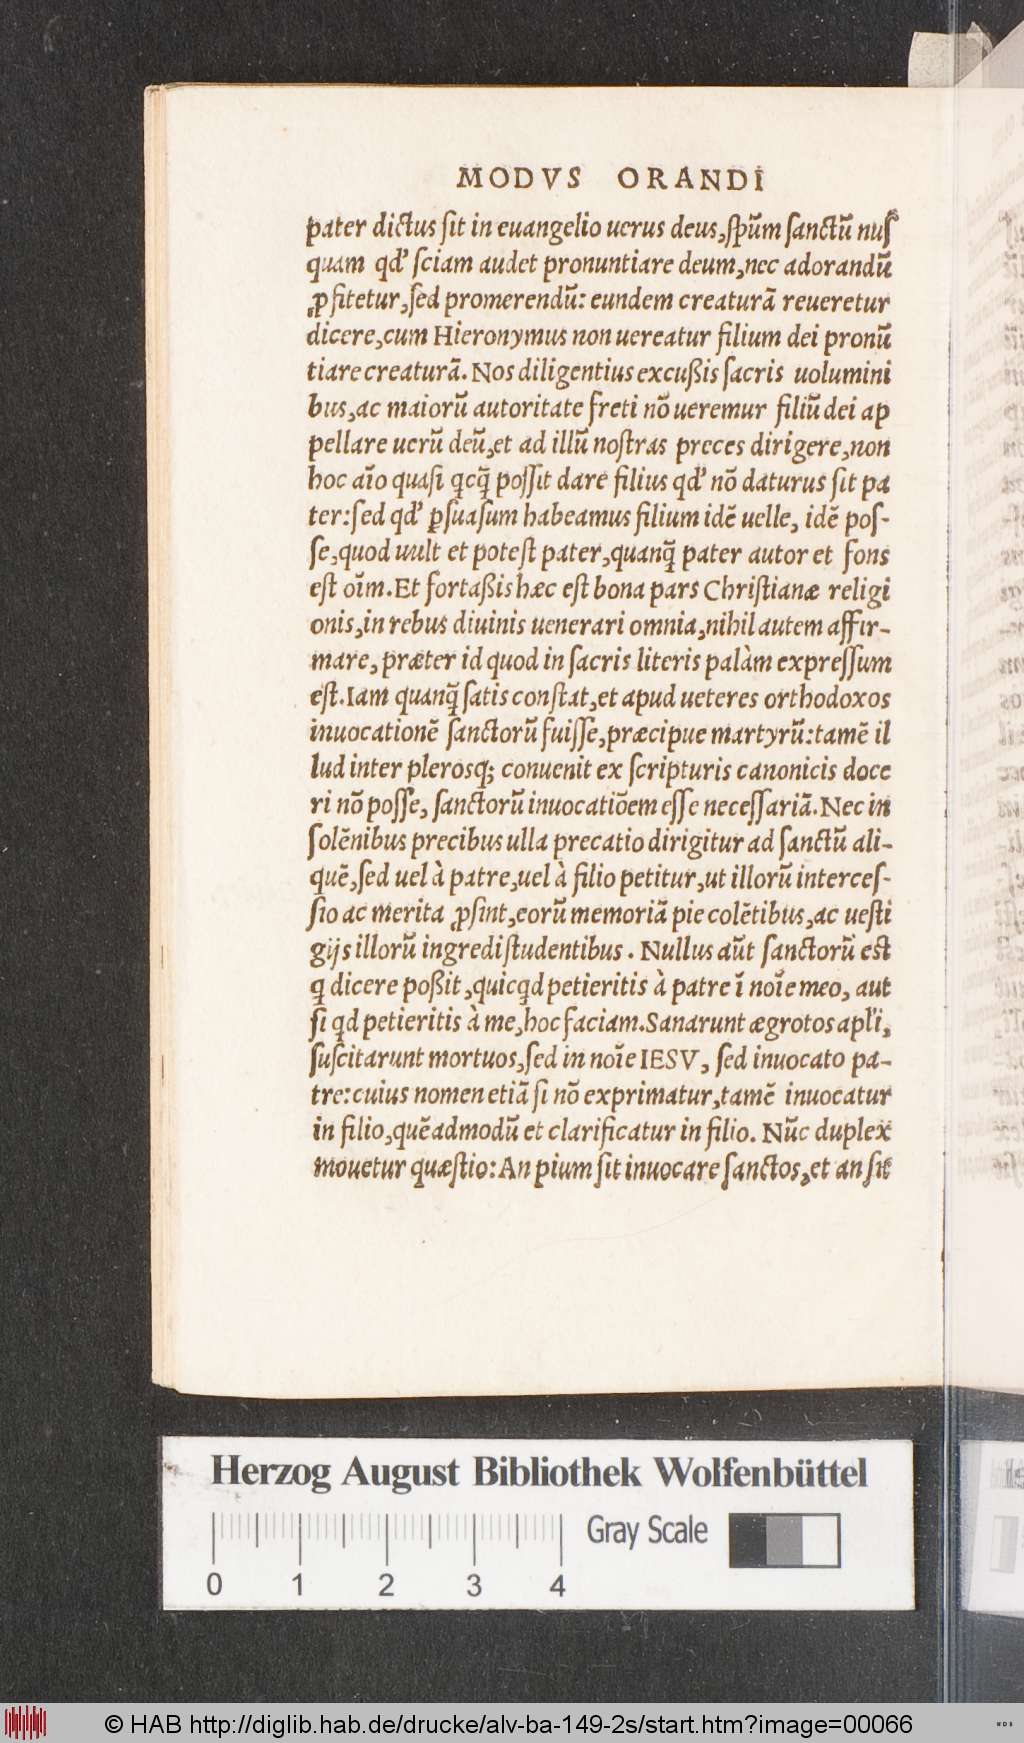 MODVS ORANDI
pater dictus ſit in euangelio uerus deus,ſpũm ſanctũ nuſ
quam qđ ſciam audet pronuntiare deum,nec adorandũ
ꝓfitetur,ſed promerendũ: eundem creaturã reueretur
dicere,cum Hieronymus non uereatur filium dei pronũ
tiare creaturã. Nos diligentius excußis ſacris uolumini
bus,ac maiorũ autoritate freti nõ ueremur filiũ dei ap
pellare uerũ deũ,et ad illũ noſtras preces dirigere,non
hoc aĩo quaſi qcq̃ poſſit dare filius qđ nõ daturus ſit pa
ter:ſed qđ ꝑſuaſum habeamus filium idẽ uelle, idẽ poſ-
ſe,quod uult et poteſt pater,quanq̃ pater autor et fons
eſt oĩm. Et fortaßis hæc eſt bona pars Chriſtianæ religi
onis,in rebus diuinis uenerari omnia,nihil autem affir-
mare, præter id quod in ſacris literis palàm expreſſum
eſt. Iam quanq̃ ſatis conſtat,et apud ueteres orthodoxos
inuocationẽ ſanctorũ fuiſſe,præcipue martyrũ:tamẽ il
lud inter pleroſq; conuenit ex ſcripturis canonicis doce
ri nõ poſſe, ſanctorũ inuocatiõem eſſe neceſſariã. Nec in
ſolẽnibus precibus ulla precatio dirigitur ad ſanctũ ali-
quẽ,ſed uel à patre,uel à filio petitur,ut illorũ interceſ-
ſio ac merita ꝓſint,eorũ memoriã pie colẽtibus,ac ueſti
gijs illorũ ingredi ſtudentibus . Nullus aũt ſanctorũ eſt
q dicere poßit,quicqd petieritis à patre ĩ noĩe meo, aut
ſi qd petieritis à me,hoc faciam. Sanarunt ægrotos apľi,
ſuſcitarunt mortuos,ſed in noĩe IESV, ſed inuocato pa-
tre:cuius nomen etiã ſi nõ exprimatur,tamẽ inuocatur
in filio,quẽadmodũ et clarificatur in filio. Nũc duplex
mouetur quæſtio: An pium ſit inuocare ſanctos,et an ſit
Herzog August Bibliothek Wolfenbüttel
Gray Scale
0 1 2 3 4
© HAB http://diglib.hab.de/drucke/alv-ba-149-2s/start.htm?image=00066